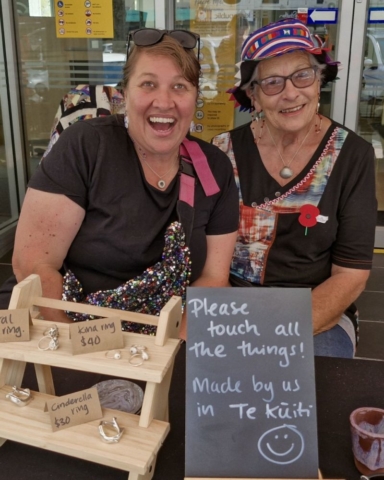 Please
touch all
the things!
Made by us
in Te Kūiti
al
ring.
Kina ring
$40
Cinderella
ring
$30